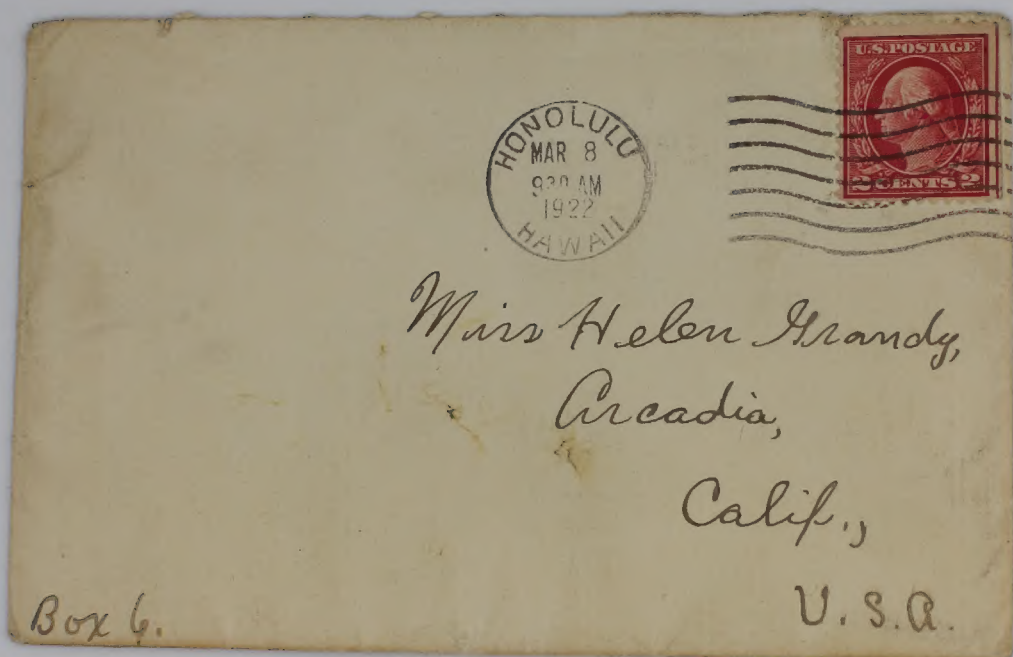 U.S. POSTAGE
2 CENTS 2
HONOLULU
MAR 8
930 AM
1922
HAWAII
Miss Helen Grandy,
Arcadia,
Calif.,
U.S.A.
Box 6.